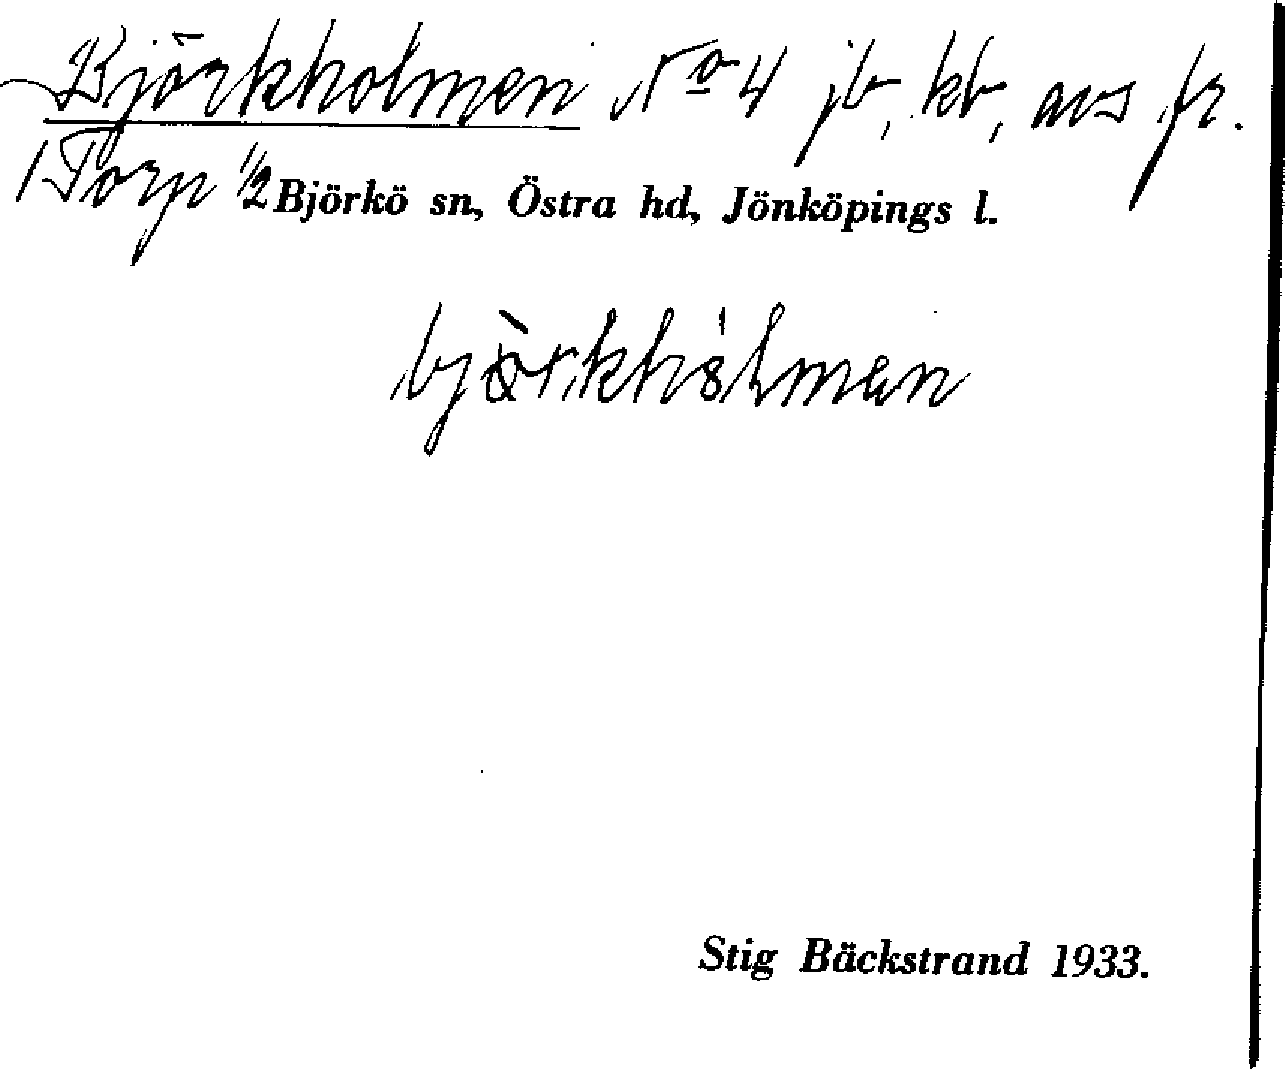 Björkholmen No 4 jb, kb, avs fr.
Torp 1/2 Björkö sn, Östra hd, Jönköpings l.
björkhölman
Stig Bäckstrand 1933.